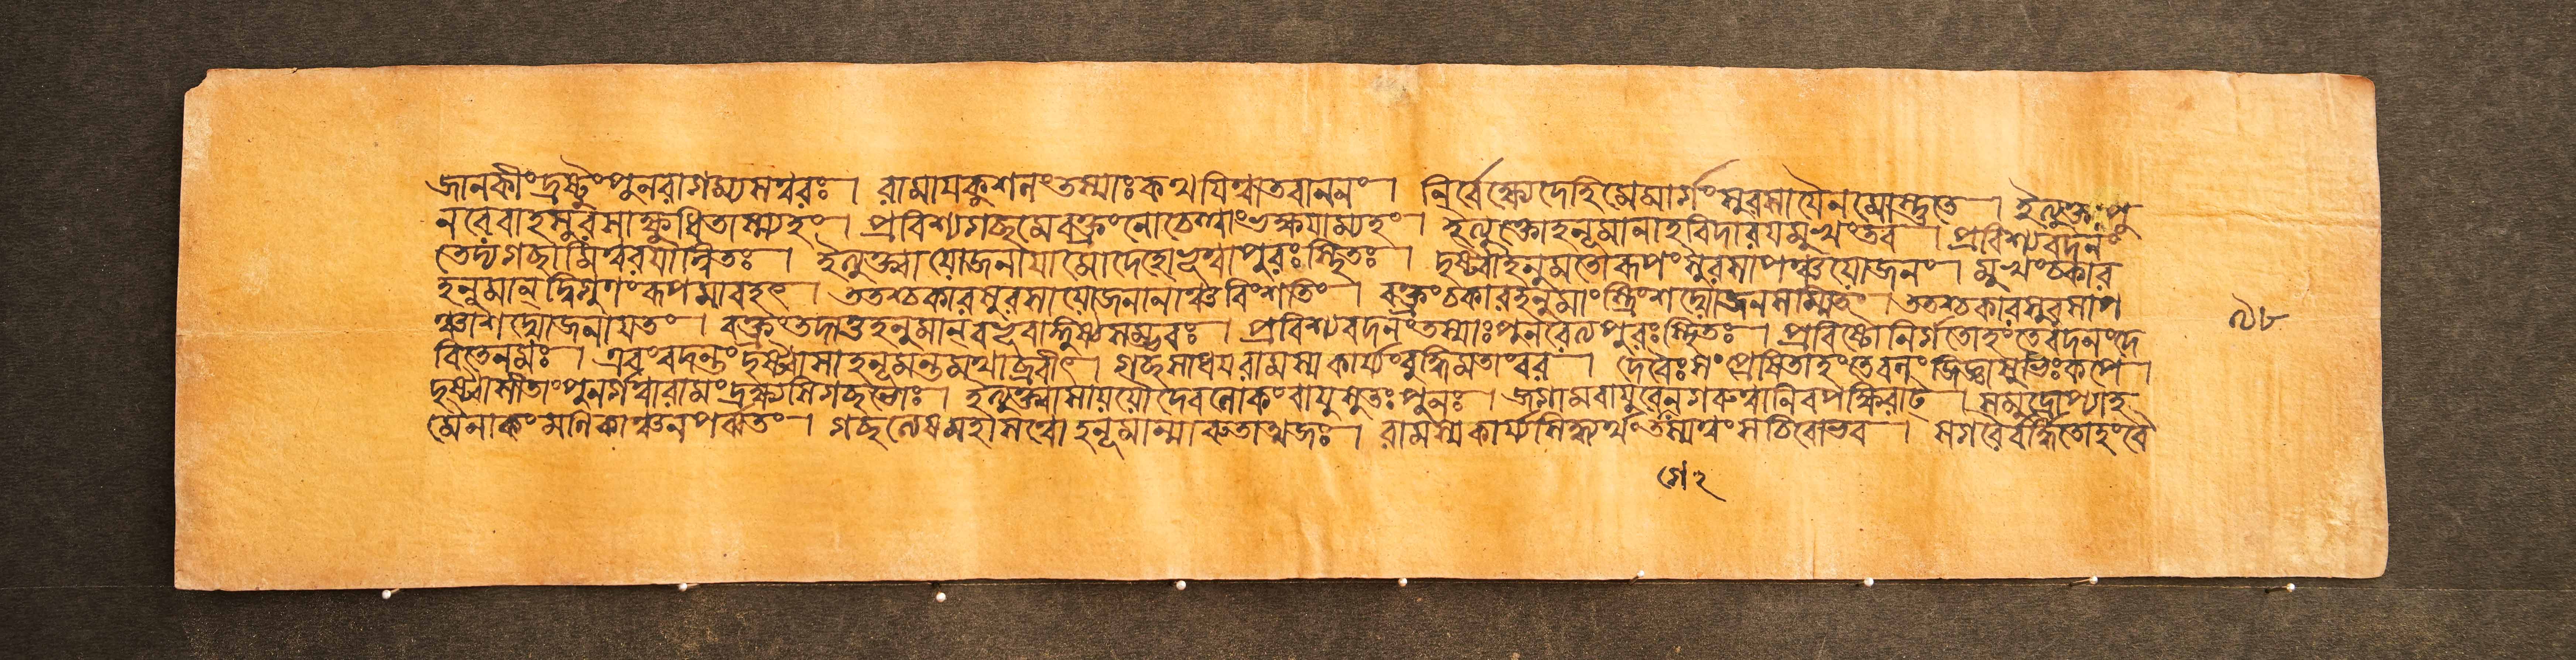 জানকীংদ্রষ্টুংপুনরাগম্যসত্বরঃ । রামাযকুশলংতস্যাঃকথযিত্বাত্বদাননং । নির্বেক্ষ্যেদেহিমেমার্গংসুরসাযৈনমোস্তুতে । ইত্যুক্তাপু
নরেবাহসুরসাক্ষুধিতাস্ম্যহং । প্রবিশ্যগচ্ছমেবক্ত্রংনোচেত্ত্বাংভক্ষযাম্যহং । ইত্যুক্তোহনূমানাহবিদারযমুখংতব । প্রবিশ্যবদনং
তেদ্যগচ্ছামিত্বরযান্বিতঃ । ইত্যুক্ত্বাযোজনাযামোদেহোভূত্বাপুরঃস্থিতঃ । দৃষ্ট্বাহনুমতোরূপংসুরসাপঞ্চযোজনং । মুখংচকার
হনুমান্দ্বিগুণংরূপমাবহৎ । ততশ্চকারসুরসাযোজনানাঞ্চবিংশতিং । বক্ত্রংচকারহনুমাংস্ত্রিংশদ্যোজনসম্মিতং । ততশ্চকারসুরসাপ
ঞ্চাশদ্যোজনাযতং । বক্ত্রংতদাতুহনুমান্বভূবাঙ্গুষ্ঠসম্ভবঃ । প্রবিশ্যবদনংতস্যাঃপুনরেত্যপুরঃস্থিতঃ । প্রবিষ্টোনির্গতোহংতেবদনংদে
বিতেনমঃ । এবংবদন্তংদৃষ্ট্বাসাহনূমন্তমথাব্রবীৎ । গচ্ছসাধযরামস্যকার্য্যংবুদ্ধিমতাংবর । দেবৈঃসংপ্রেষিতাহংতেবলংজিজ্ঞাসুভিঃকপে ।
দৃষ্ট্বাসীতাংপুনর্গত্বারামংদ্রক্ষ্যসিগচ্ছভোঃ । ইত্যুক্ত্বাসাযযৌদেবলোকংবাযুসুতঃপুনঃ । জগামবাযুবেনগরুত্মানিবপক্ষিরাট । সমুদ্রোপ্যাহ
মৈনাকংমণিকাঞ্চনপর্ব্বতং । গচ্ছত্যেষমহাসত্বোহনূমান্মারুতাত্মজঃ । রামস্যকার্য্যসিদ্ধ্যর্থংতস্যত্বংসচিবোভব । সগরৈর্বর্দ্ধিতোহংবৈ
৯৮
গে২